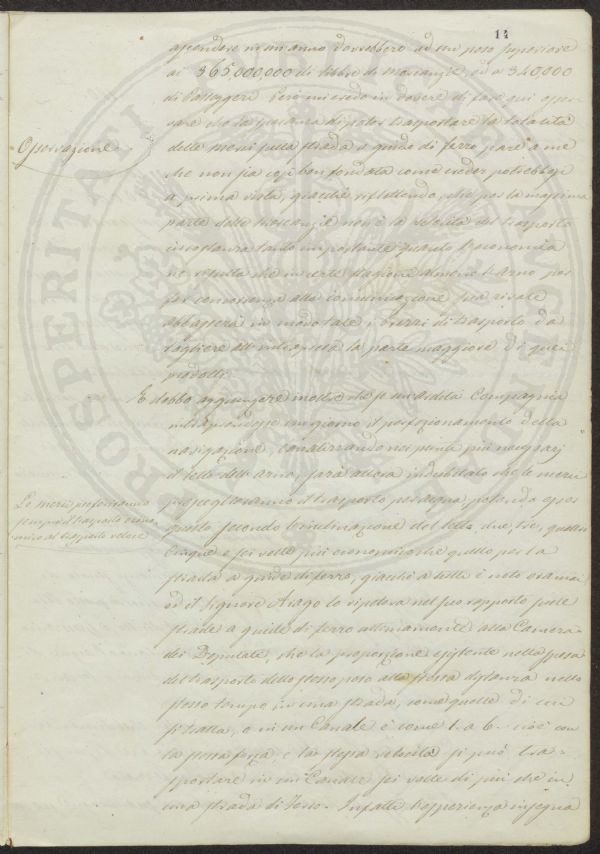 14
ascendere in un anno dovrebbero ad un peso superiore
ai 365,000,000 di libbre di Mercanzie, ed a 340,000
di Passeggeri. Però mi credo in dovere di fare qui osser-
vare che la speranza di poter trasportare la totalità
Osservazione
delle merci sulla strada a guide di ferro, pare a me
che non sia così ben fondata come creder potrebbesi
a prima vista, giacchè riflettendo, che per la massima
parte delle mercanzie non è la velocità del trasporto
circostanza tanto importante quanto l'economia
ne risulta che in certe stagioni almeno l'Arno per
far concorrenza alla comunicazione sua rivale
abbasserà in modo tale i prezzi di trasporto da
togliere all'intrapresa la parte maggiore di quei
prodotti.
E debbo aggiungere inoltre che se un'ardita Compagnia
intraprendesse un giorno il perfezionamento della
navigazione, canalizzando nei punti più necessarj
il letto dell'Arno, sarà allora indubitato che le merci
Le merci preferiranno
sempre il trasporto econo-
mico al trasporto veloce
presceglieranno il trasporto per acqua, potendo esser
questo secondo l'inclinazione del letto due, tre, quattro
cinque e sei volte più economico che quello per la
strada a guide di ferro, giacchè a tutti è noto oramai
ed il Signore Arago lo ripeteva nel suo rapporto sulle
strade a guide di ferro ultimamente alla Camera
dei Deputati, che la proporzione esistente nella spesa
del trasporto dello stesso peso alla stessa distanza nello
stesso tempo in una strada, come quelle di cui
si tratta, o in un Canale è come 1. a 6. cioè con
la stessa forza, e la stessa velocità si può tra-
sportare in un Canale sei volte di più che in
una strada di ferro. Infatti l'esperienza insegna
PROSPERITATI PUBLICAE